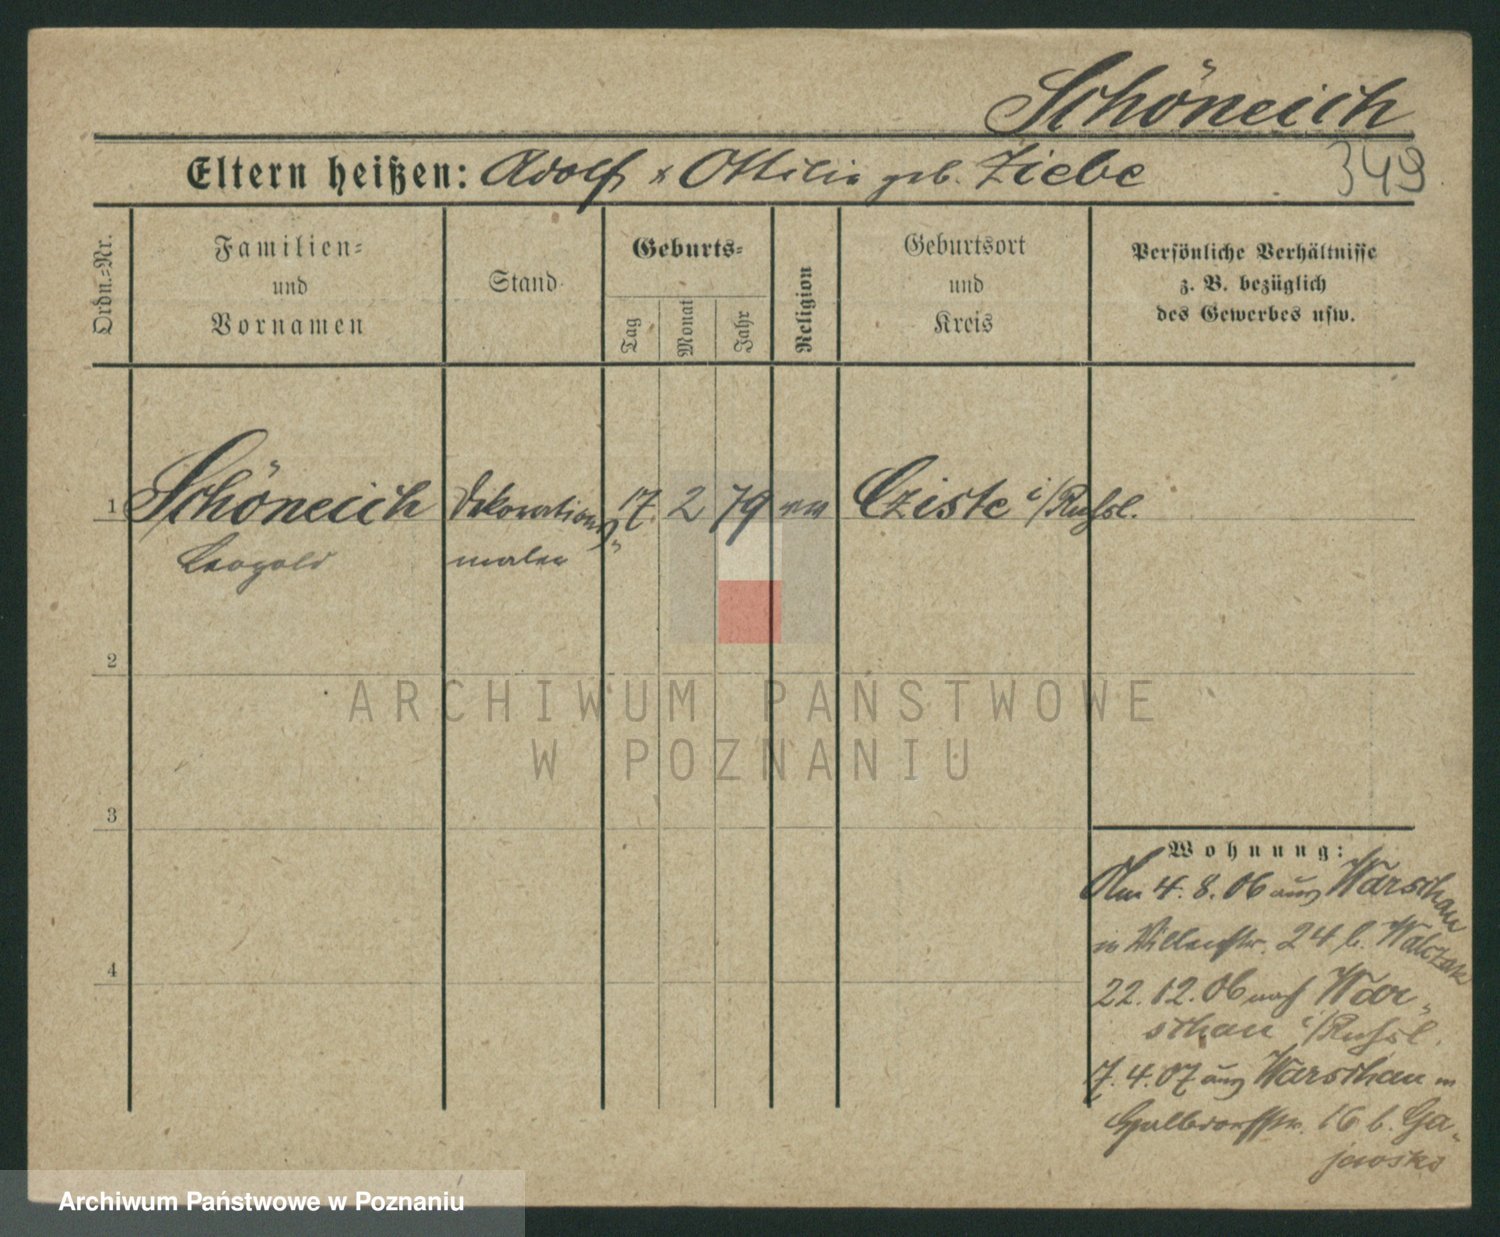 Schöneich
349
Eltern heißen: Adolf & Ottilie geb. Ziebe
Ordn.-Nr.
Familien-
und
Vornamen
Stand
Geburts-
Tag
Monat
Jahr
Religion
Geburtsort
und
Kreis
Persönliche Verhältnisse
z. B. bezüglich
des Gewerbes usw.
1 Schöneich Dekorations 17. 2 79 Cziste i/Rußl.
Leopold maler
2
ARCHIWUM PAŃSTWOWE
W POZNANIU
3
Wohnung:
Am 4. 8. 06 aus Warschau
24 b. Walczak
4
22. 12. 06 nach War-
schau i/Rußl.
7. 4. 07 aus Warschau in
16 b. Ga-
jewski
Archiwum Państwowe w Poznaniu